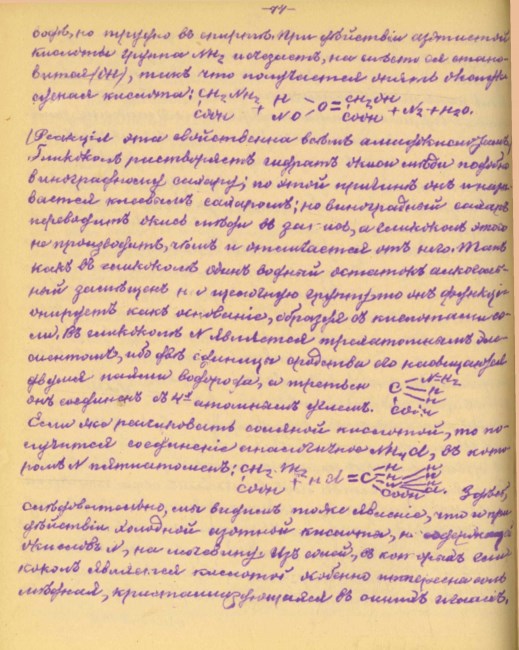 -44-
водѣ, но трудно въ спиртѣ. При дѣйствіи азотистой
кислоты группа NH2 исчезаетъ, на мѣсто ея стано-
вится (OH), такъ что получается опять оксиук-
сусная кислота: CH2NH2 + H = CH2OH + N2 + H2O.
COOH NO O COOH
(Реакція эта свойственна всѣмъ амидокислотамъ).
Гликоколъ растворяетъ гидратъ окиси мѣди подобно
виноградному сахару; по этой причинѣ онъ и назы-
вается клеевымъ сахаромъ; но виноградный сахаръ
переводитъ окись мѣди въ закись, а гликоколъ этого
не производитъ, чѣмъ и отличается отъ него. Такъ
какъ въ гликоколѣ одинъ водный остатокъ алкоголь-
ный замѣщенъ на щелочную группу, то онъ функці-
онируетъ какъ основаніе, образуя съ кислотами со-
ли. Въ гликоколѣ N является трехатомнымъ эле-
ментомъ, ибо двѣ единицы сродства его насыщаются
двумя паями водорода, а третьей C N=H2
онъ соединенъ съ 4х атомнымъ углемъ. H H
COOH
Если же реагировать соляной кислотой, то по-
лучится соединеніе аналогичное NH4Cl, въ кото-
ромъ N пятиатоменъ: CH2.NH2 + HCl = C
COOH COOH Здѣсь,
слѣдовательно, мы видимъ тоже явленіе, что и при
дѣйствіи холодной азотной кислоты, не содержащей
окисловъ N, на мочевину. Изъ солей, въ которыхъ гли-
коколъ является кислотой особенно интересна соль
мѣдная, кристаллизующаяся въ синихъ иглахъ.